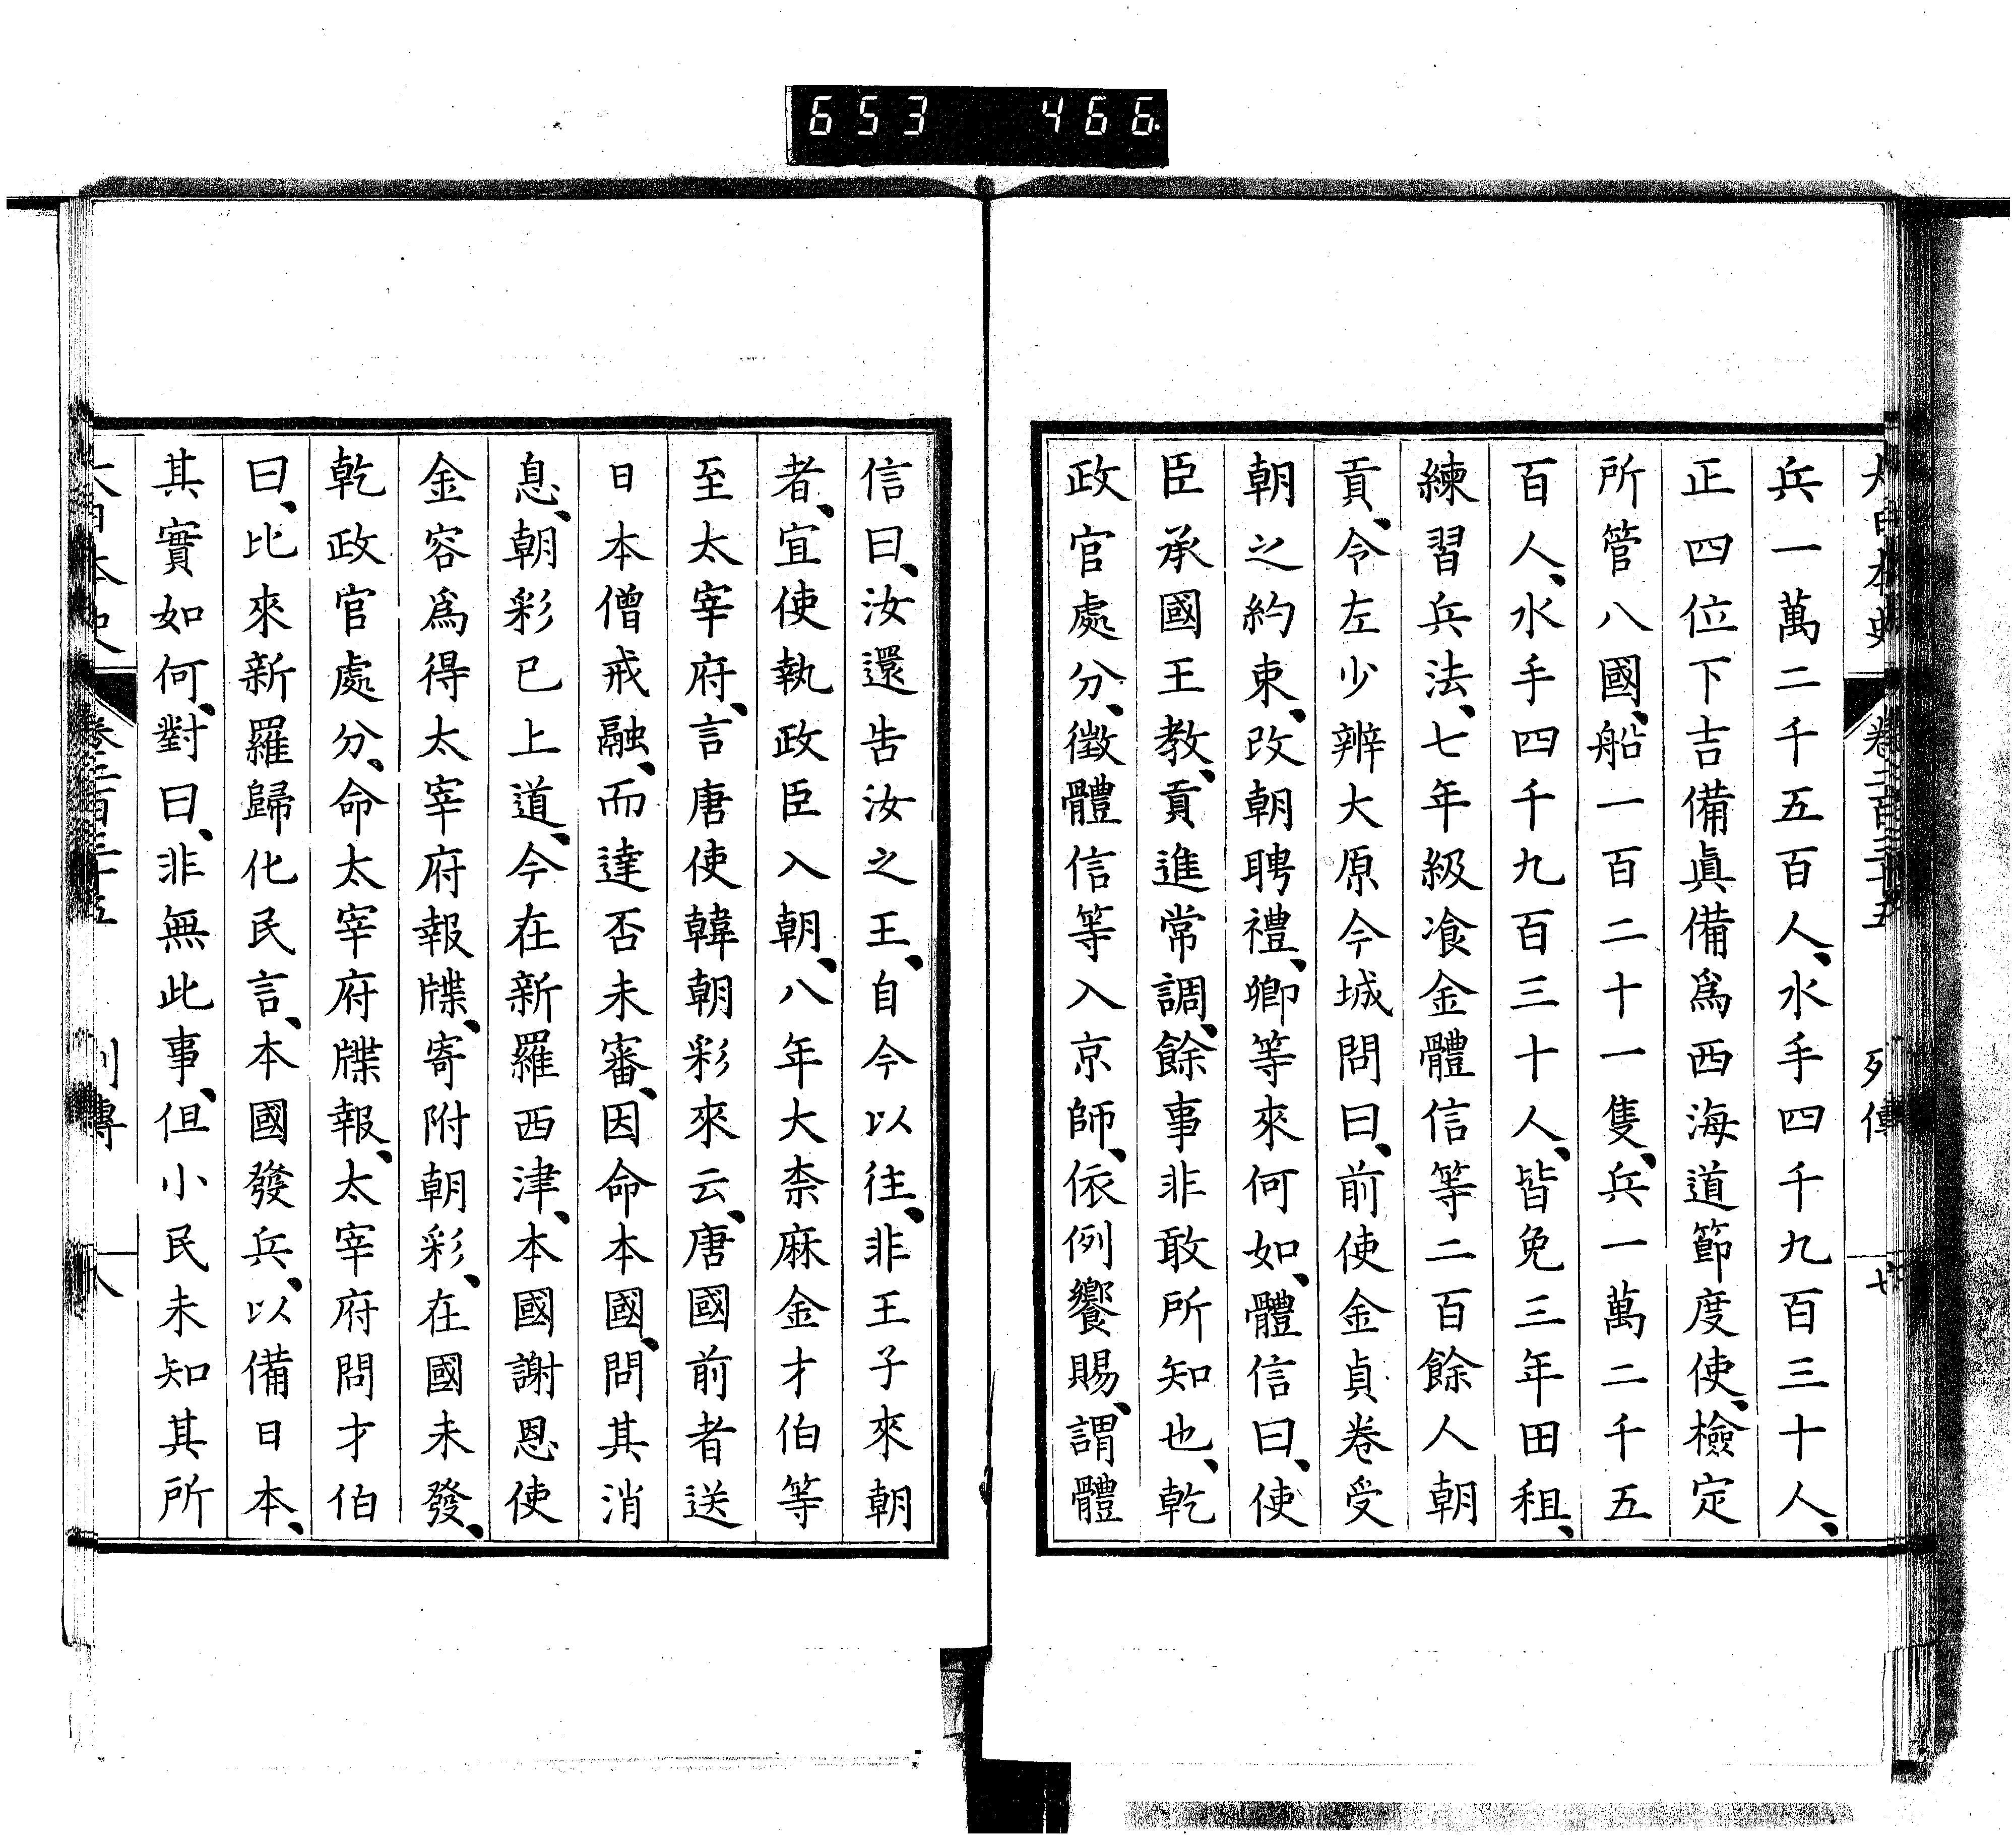 653 466
大日本史 卷二百三十五 列傳 七
兵一萬二千五百人、水手四千九百三十人、
正四位下吉備眞備爲西海道節度使、檢定
所管八國、船一百二十一隻、兵一萬二千五
百人、水手四千九百三十人、皆免三年田租、
練習兵法、七年級飡金體信等二百餘人朝
貢、令左少辨大原今城問曰、前使金貞卷受
朝之約束、改朝聘禮、卿等來何如、體信曰、使
臣承國王教、貢進常調、餘事非敢所知也、乾
政官處分、徵體信等入京師、依例饗賜、謂體
信曰、汝還告汝之王、自今以往、非王子來朝
者、宜使執政臣入朝、八年大柰麻金才伯等
至太宰府、言唐使韓朝彩來云、唐國前者送
日本僧戒融、而達否未審、因命本國、問其消
息、朝彩已上道、今在新羅西津、本國謝恩使
金容爲得太宰府報牒、寄附朝彩、在國未發、
乾政官處分、命太宰府牒報、太宰府問才伯
曰、比來新羅歸化民言、本國發兵、以備日本、
其實如何、對曰、非無此事、但小民未知其所
大日本史 卷二百三十五 列傳 八